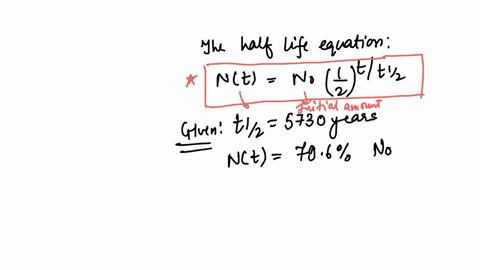 The half life equation:
* N(t) = N0 (1/2)^t/t1/2
initial amount
Given: t1/2 = 5730 years
N(t) = 70.6% N0